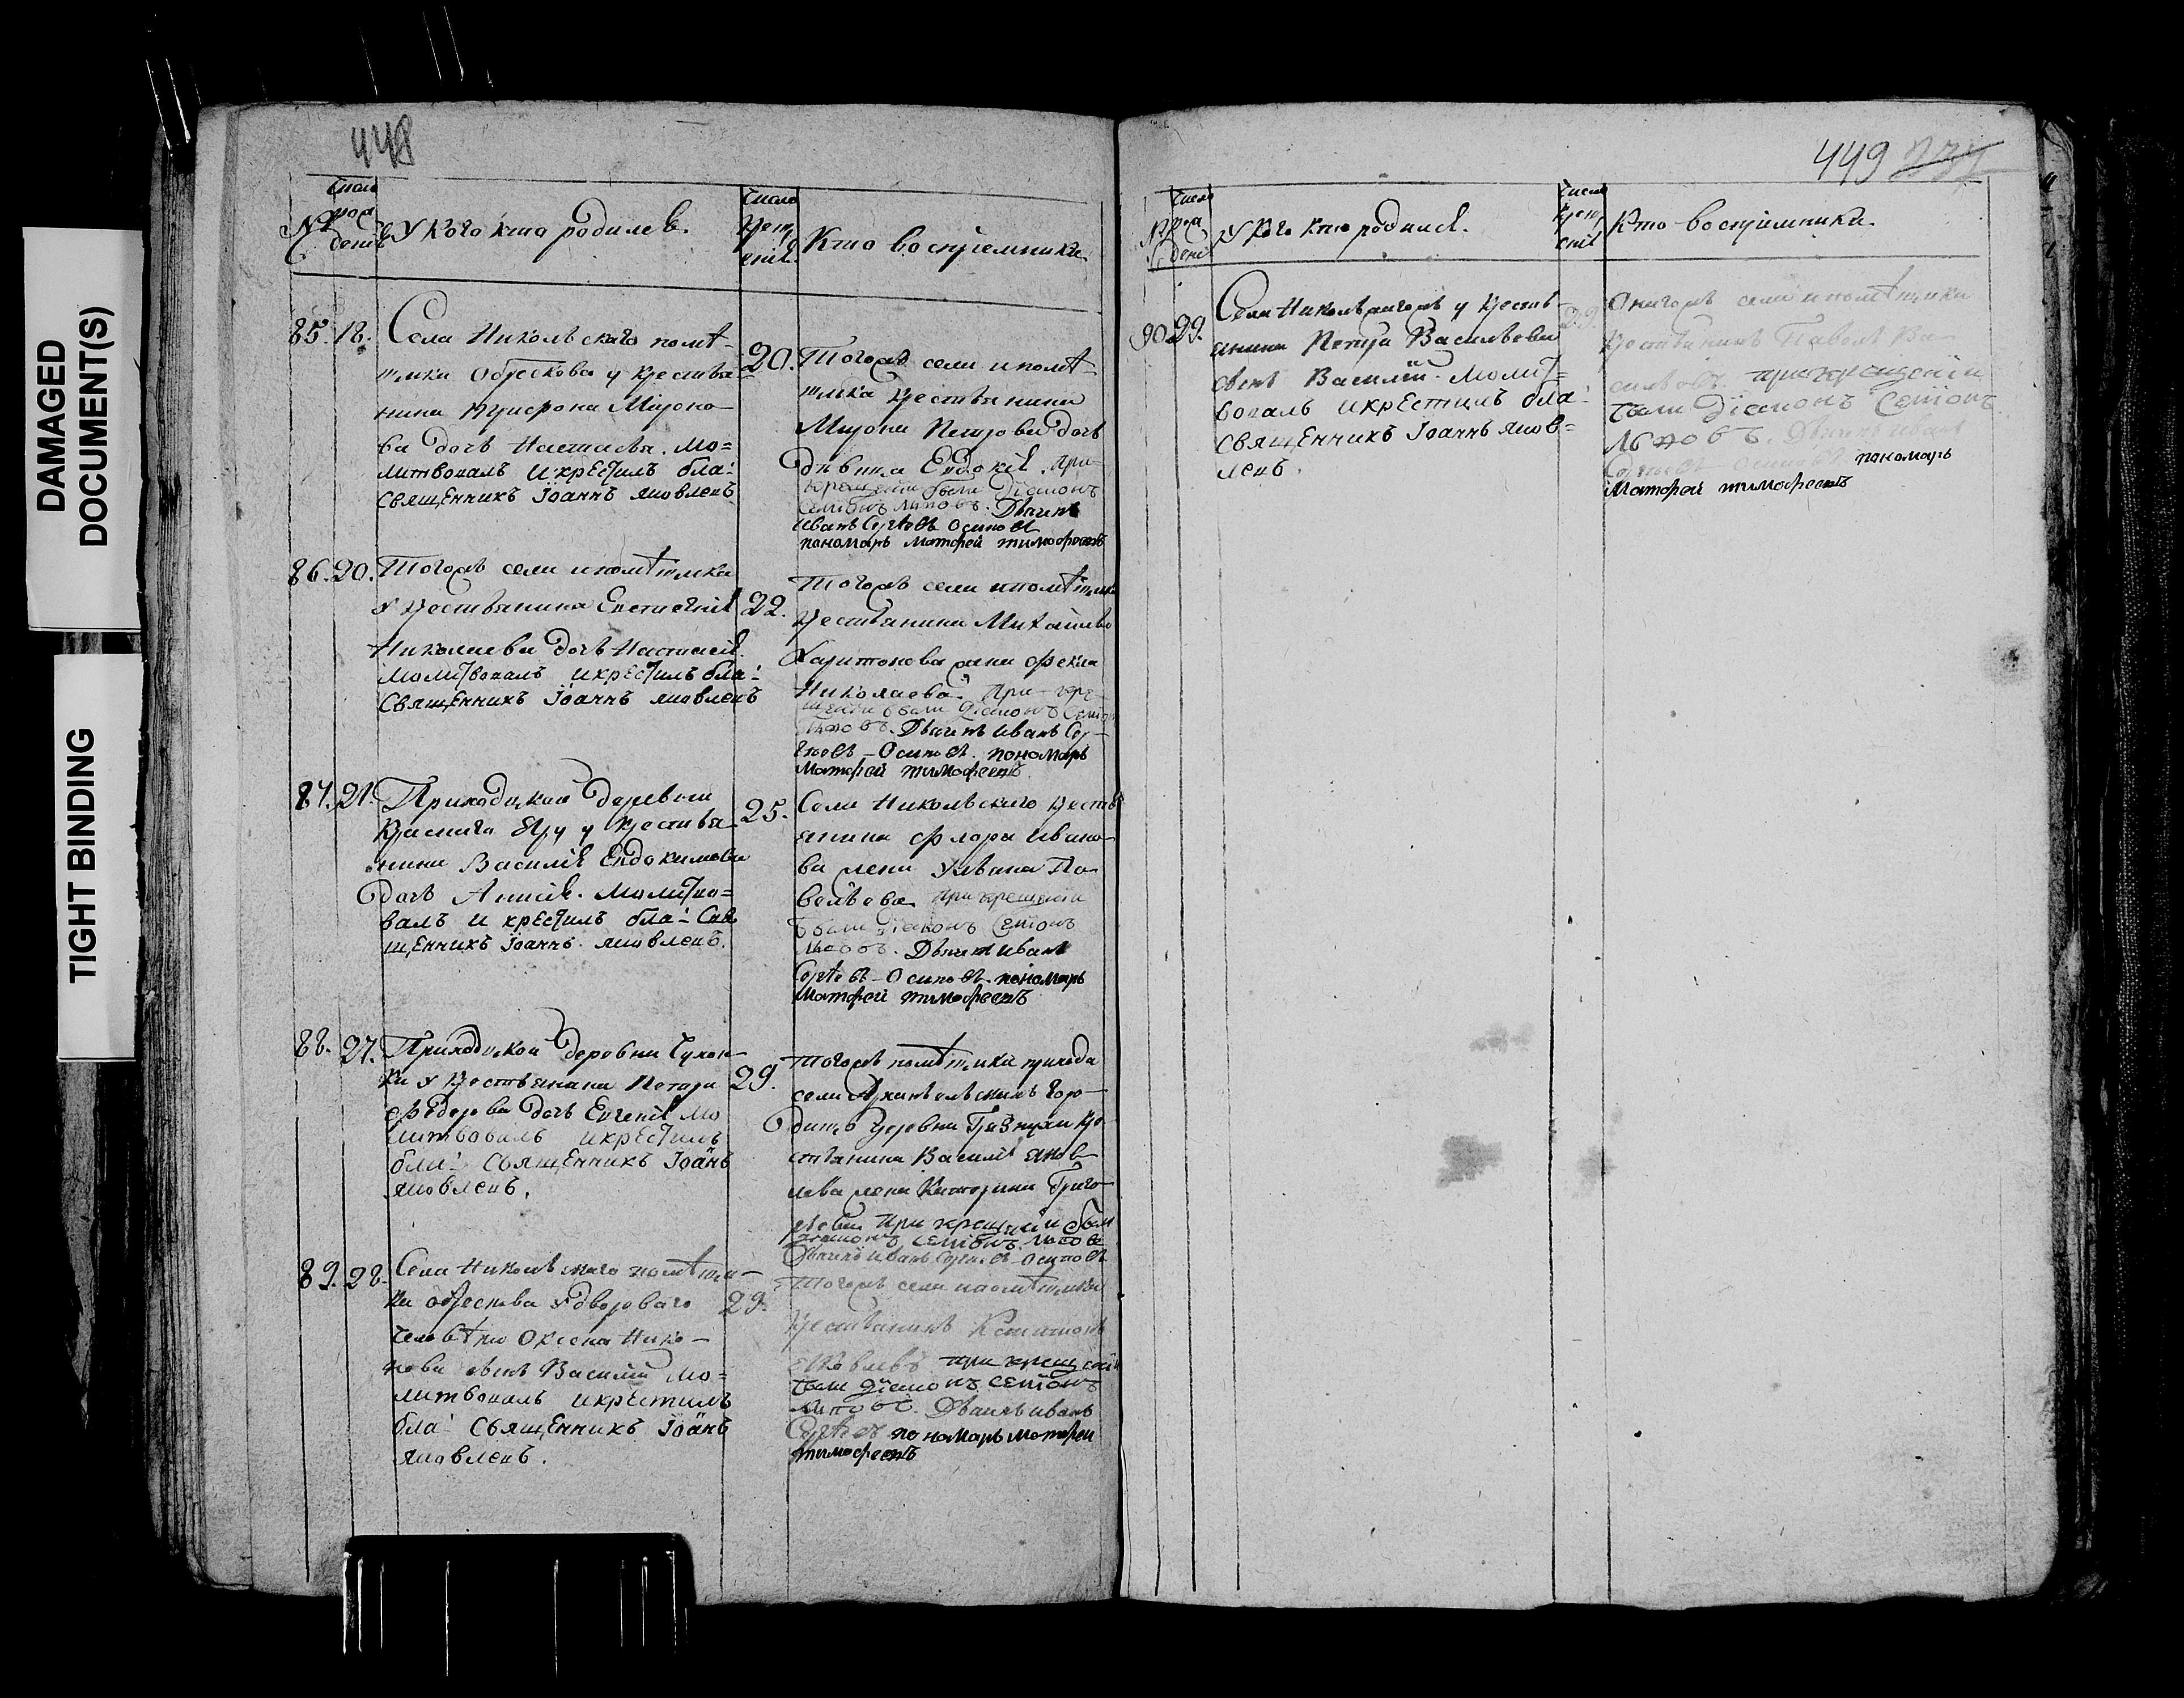 DAMAGED
DOCUMENT(S)
TIGHT BINDING
448
Число
№ рож
денія У кого кто родился.
Число
крещ
енія
Кто воспріемники
85. 18. Села Никольскаго помѣ-
щика Обрескова у крестья
нина Мироно-
ва дочь Настасья. мо=
литвовалъ и крестилъ бла:
священникъ Іоаннъ яковлевъ
20. Тогожъ села и помѣ
щика крестьянина
Мирона Петрова дочь
девица Евдокія. при
крещеніи были діаконъ
Семіонъ Дьячекъ
иванъ Сергѣевъ Осиповъ
пономарь матфей тимофеевъ
86. 20. Тогожъ села и помѣщика
у крестьянина
Николаева дочь Настасія.
молитвовалъ и крестилъ бла:
священникъ Іоаннъ яковлевъ
22. Тогожъ села и помѣщика
крестьянина Михайлы
Харитонова жена фекла
Николаева. При кре-
щеніи были діаконъ Семіо
Дьячекъ иванъ Сер-
гѣевъ - Осиповъ. пономарь
матфей тимофеевъ.
87. 21. Приходской деревни
Краснаго Яру у крестья
нина Василія Евдокимова
дочь Анисія. молитво=
валъ и крестилъ бла: Свя
щенникъ Іоаннъ. яковлевъ.
25. Села Никольскаго кресть
янина флора Ивано-
ва жена Ульяна Па
вельева при крещеніи
были діаконъ Семіонъ
Дьячекъ иванъ
Сергѣевъ - Осиповъ. пономарь
матфей тимофеевъ
88. 27. Приходской деревни
у крестьянина Петра
федорова дочь Евгенія мо
литвовалъ и крестилъ
бла: священникъ Іоанъ
яковлевъ.
29. Тогожъ помѣщика прихода
села
деревни Грязнухи кре
стьянина Василія яков
лева жена Катерина Григо
рьева при крещеніи были
діаконъ Семіонъ
Дьячекъ иванъ Сергѣевъ Осиповъ
89. 28. Села Никольскаго помѣщи-
ка обрескова у двороваго
человѣка Нико-
нова сынъ Василій мо=
литвовалъ и крестилъ
бла: священникъ Іоанъ
яковлевъ.
29. Тогожъ села и помѣщика
крестьянинъ
яковлевъ при крещеніи
были діаконъ Семіонъ
Дьячекъ иванъ
Сергѣевъ пономарь матфеи
тимофеевъ
449
Число
№ рож
денія У кого кто родился.
Число
крещ
енія
Кто воспріемники.
90. 29. Села Никольскагожъ у кресть
янина Петра Васильева
сынъ Василій. Молит=
вовалъ и крестилъ бла:
священникъ Іоаннъ яков=
левъ.
29. Онагожъ села и помѣщика
крестьянинъ Павелъ Ва
сильевъ. при крещеніи
были діаконъ Семіонъ
Дьячекъ иванъ
Сергѣевъ Осиповъ пономарь
матфей тимофеевъ